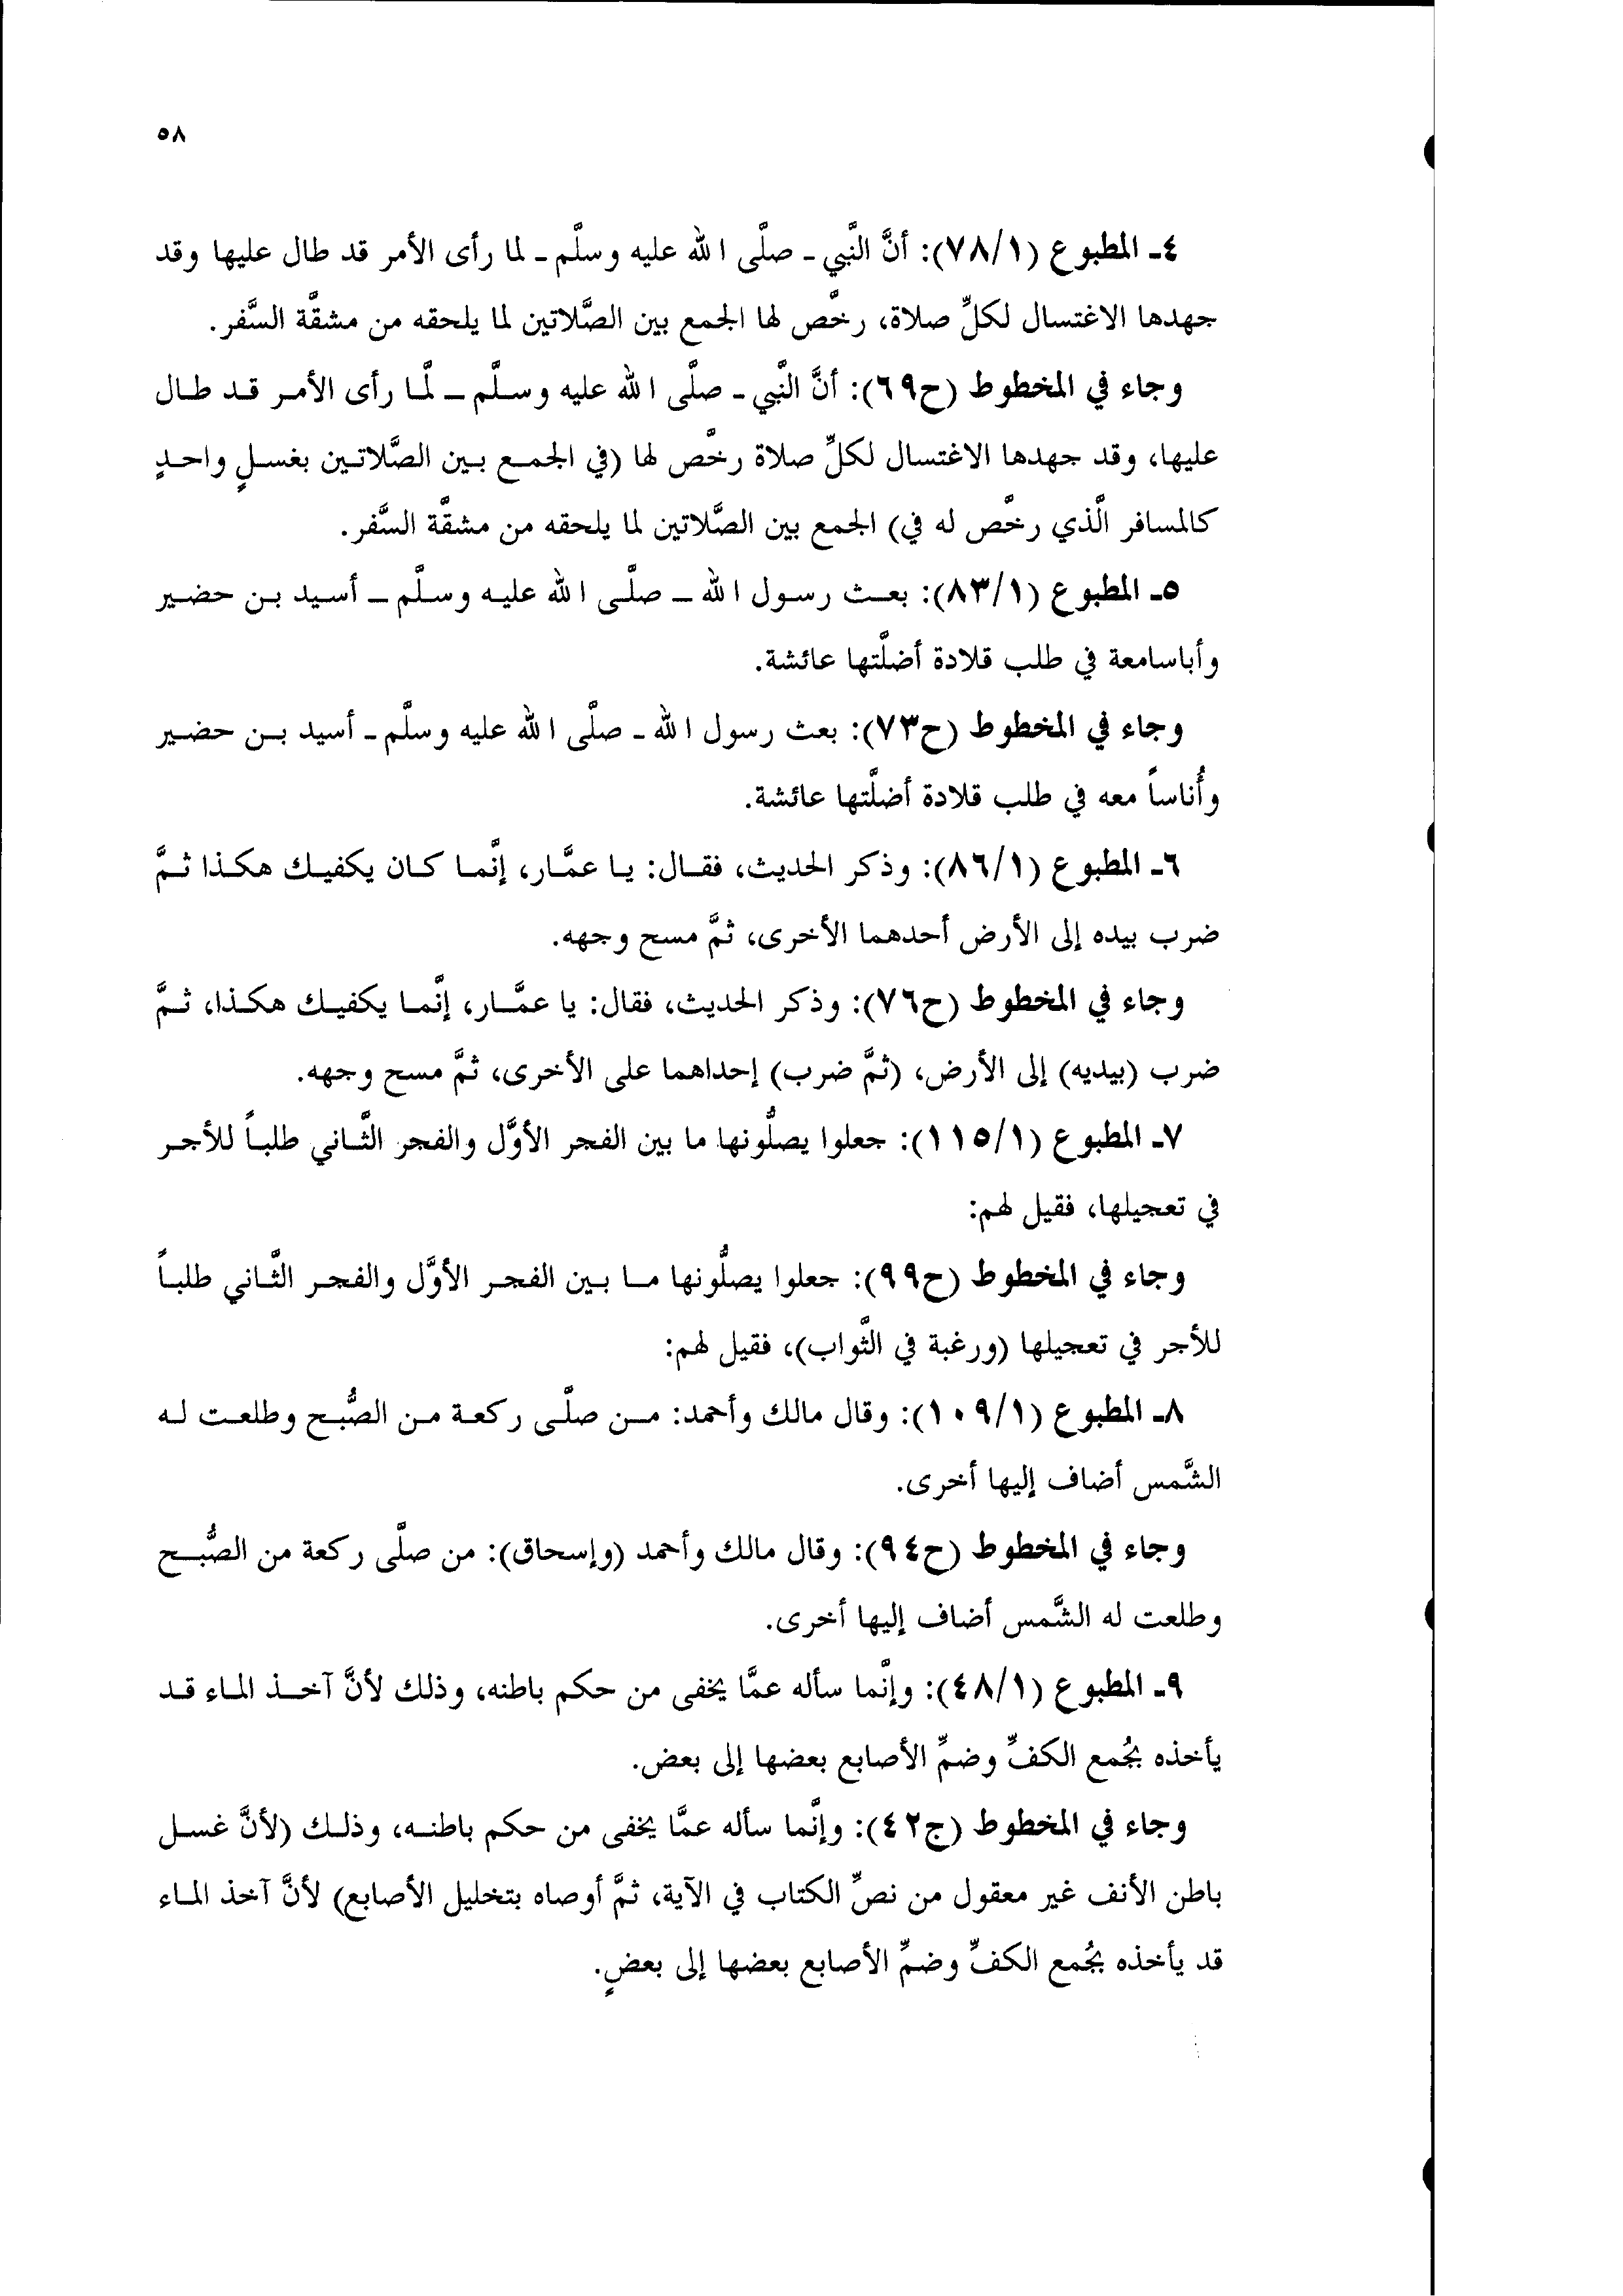 ٥٨
٤ـ المطبوع (٧٨/١): أنَّ النَّبي ـ صلَّى الله عليه وسلَّم ـ لما رأى الأمر قد طال عليها وقد
جهدها الاغتسال لكلِّ صلاة، رخَّص لها الجمع بين الصَّلاتين لما يلحقه من مشقَّة السَّفر.
وجاء في المخطوط (ح٦٩): أنَّ النَّبي ـ صلَّى الله عليه وسلَّم ـ لمَّا رأى الأمر قد طال
عليها، وقد جهدها الاغتسال لكلِّ صلاة رخَّص لها (في الجمع بين الصَّلاتين بغسلٍ واحدٍ
كالمسافر الَّذي رخَّص له في) الجمع بين الصَّلاتين لما يلحقه من مشقَّة السَّفر.
٥ـ المطبوع (٨٣/١): بعث رسول الله ـ صلَّى الله عليه وسلَّم ـ أسيد بن حضير
وأباسامعة في طلب قلادة أضلَّتها عائشة.
وجاء في المخطوط (ح٧٣): بعث رسول الله ـ صلَّى الله عليه وسلَّم ـ أسيد بن حضير
وأُناساً معه في طلب قلادة أضلَّتها عائشة.
٦ـ المطبوع (٨٦/١): وذكر الحديث، فقال: يا عمَّار، إنَّما كان يكفيك هكذا ثمَّ
ضرب بيده إلى الأرض أحدهما الأخرى، ثمَّ مسح وجهه.
وجاء في المخطوط (ح٧٦): وذكر الحديث، فقال: يا عمَّار، إنَّما يكفيك هكذا، ثمَّ
ضرب (بيديه) إلى الأرض، (ثمَّ ضرب) إحداهما على الأخرى، ثمَّ مسح وجهه.
٧ـ المطبوع (١١٥/١): جعلوا يصلُّونها ما بين الفجر الأوَّل والفجر الثَّاني طلباً للأجر
في تعجيلها، فقيل لهم:
وجاء في المخطوط (ح٩٩): جعلوا يصلُّونها ما بين الفجر الأوَّل والفجر الثَّاني طلباً
للأجر في تعجيلها (ورغبة في الثَّواب)، فقيل لهم:
٨ـ المطبوع (١٠٩/١): وقال مالك وأحمد: من صلَّى ركعة من الصُّبح وطلعت له
الشَّمس أضاف إليها أخرى.
وجاء في المخطوط (ح٩٤): وقال مالك وأحمد (وإسحاق): من صلَّى ركعة من الصُّبح
وطلعت له الشَّمس أضاف إليها أخرى.
٩ـ المطبوع (٤٨/١): وإنَّما سأله عمَّا يخفى من حكم باطنه، وذلك لأنَّ آخذ الماء قد
يأخذه بجُمع الكفِّ وضمِّ الأصابع بعضها إلى بعض.
وجاء في المخطوط (ج٤٢): وإنَّما سأله عمَّا يخفى من حكم باطنه، وذلك (لأنَّ غسل
باطن الأنف غير معقول من نصِّ الكتاب في الآية، ثمَّ أوصاه بتخليل الأصابع) لأنَّ آخذ الماء
قد يأخذه بجُمع الكفِّ وضمِّ الأصابع بعضها إلى بعضٍ.